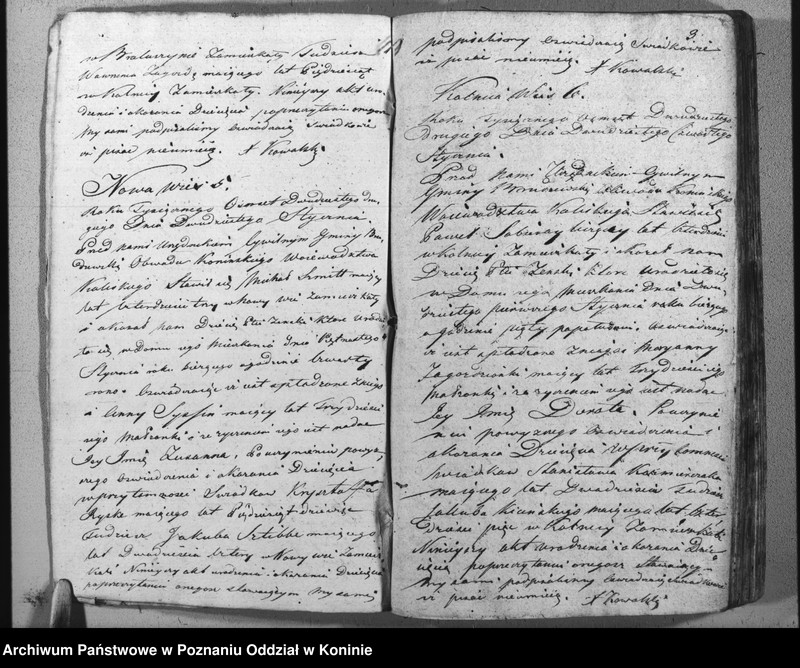 w Bralewnicy Zamieszkały tudzież
Wawrzyna Zagozdę maiącego lat Pięćdziesiąt
w Kolnicy Zamieszkały. Niniejszy akt uro-
dzenia i okazania Dziecięcia poprzeczytaniu onegoż
My sami podpisaliśmy oświadczaią Świadkowie
iż pisać nieumieią. A Kowalski
Nowa wieś 5.
Roku Tysiącznego Osmset Dwudziestego dru-
giego Dnia Dwudziestego Stycznia.
Przed nami Urzędnikiem Cywilnym Gminy
Obwodu Konińskiego Woiewództwa
Kaliskiego Stawił się Michał Szmitt maiący
lat czterdzieści trzy w Nowy wsi zamieszkały
i okazał nam Dziecię Płci Zenski które urodzi-
ło się w Domu iego Mieszkania Dnia Piętnastego
Stycznia roku bieżącego o godzinie czwarty
zrana. Oświadczaiąc iż iest spłodzone z niego
i Anny maiącey lat Trzydzieści
iego Małżonki i że życzeniem iego iest nadać
Jey Imię Zuzanna, Po uczynieniu powyż-
szego oświadczenia i okazania Dziecięcia
w przytomności Świadków Krysztoffa
Rycke maiącego lat Pięćdziesiąt dziewięć
Tudzież Jakuba Sztibbe maiącego
lat Dwadzieścia cztery w Nowy wsi Zamiesz-
kali Niniejszy akt urodzenia i okazania Dziecięcia
poprzeczytaniu onegoż stawaiącym My sami
3
podpisaliśmy oświadczaią Świadkowie
iż pisać nieumieią. A Kowalski
Kolnica Wieś 6.
Roku tysiącznego osmset Dwudziestego
Drugiego Dnia Dwudziestego Czwartego
Stycznia.
Przed Nami Urzędnikiem Cywilnym
Gminy Obwodu Konińskiego
Woiewództwa Kaliskiego Stawił się
Paweł liczący lat
w Kolnicy Zamieszkały i okazał nam
Dziecię Płci Zenski które urodziło się
w Domu iego Mieszkania Dnia Dwu-
dziestego pierwszego Stycznia roku bieżącego
o godzinie piąty popołudniu. Oświadczaiąc
iż iest spłodzone z niego i Maryanny
maiący lat trzydzieści iego
Małżonki i że życzeniem iego iest nadać
Jey Imię Dorota. Po uczynie-
niu powyższego oświadczenia i
okazania Dziecięcia w przytomności
świadków Stanisława Kazmierczaka
maiącego lat Dwadzieścia tudzież
Jakuba maiącego lat czter-
dzieści pięć w Kolnicy Zamieszkali
Niniejszy akt urodzenia i okazania Dzie-
cięcia poprzeczytaniu onegoż Stawaiącym
my sami podpisaliśmy oświadczaią Świadkowie
iż pisać nieumieią. A Kowalski
Archiwum Państwowe w Poznaniu Oddział w Koninie